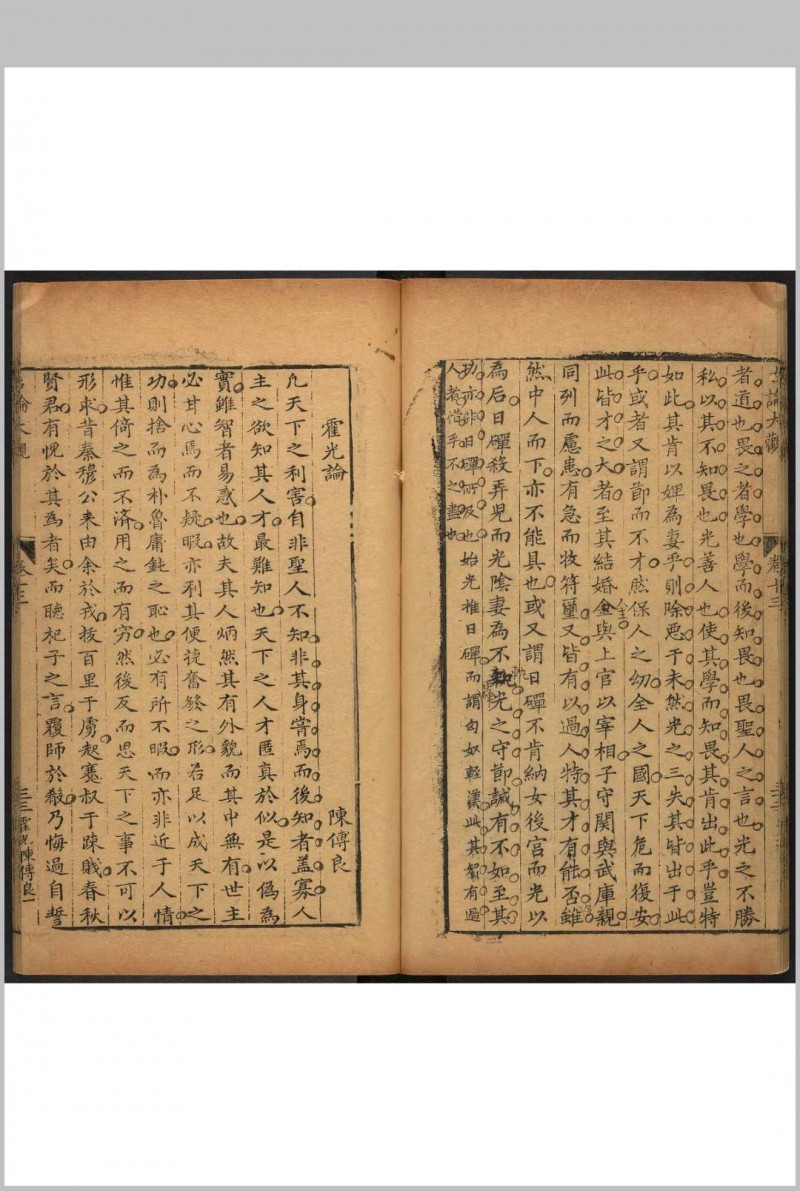 者道也畏之者學也學而後知畏也畏聖人之言也光之不勝
私以其不知畏也光善人也使其學而知畏其肯出此乎豈特
如此其肯以婢為妻乎則除惡于未然光之三失其皆出于此
乎或者又謂節而不才然保人之幼全人之國天下危而復安
此皆才之大者至其結婚金與上官以宰相子守関與武庫親
同列而慮患有急而收符璽又皆有以過人特其才有能否雖
然中人而下亦不能具也或又謂日磾不肯納女後宮而光以
為后日磾殺弄兒而光陰妻為不執光之守節誠有不如至其
功亦非日磾所及也始光推日磾而謂匈奴輕漢此其智有過
人者惜乎不之盡也
霍光論
陳傅良
凡天下之利害自非聖人不知非其身嘗焉而後知者盖寡人
主之欲知其人才最難知也天下之人才匿真於似是以偽為
實雖智者易惑也故夫其人炳然其有外貌而其中無有世主
必甘心焉而不疑暇亦利其便捷奮發之形若足以成天下之
功則捨而為朴魯庸鈍之恥也必有所不暇而亦非近于人情
惟其倚之而不濟用之而有窮然後反而思天下之事不可以
形求昔秦穆公来由余於戎抜百里于虜起蹇叔于疎賤春秋
賢君有愧於其為者矣而聴杞子之言覆師於殽乃悔過自誓
卷十三
霍光陳傅良一